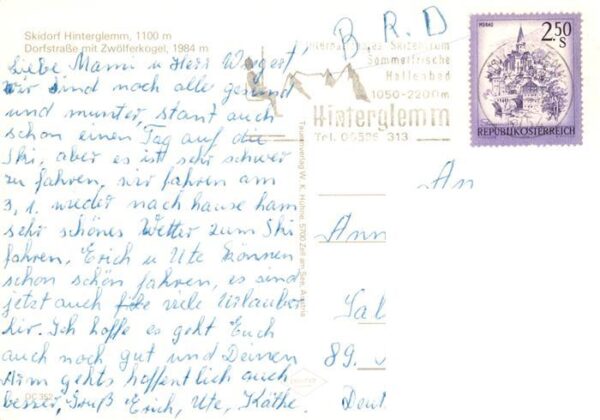 Skidorf Hinterglemm, 1100 m
Dorfstraße mit Zwölferkogel, 1984 m
Liebe Mami u Herr Weigert!
wir sind noch alle gesund
und munter, stant auch
schon einen Tag auf die
Ski, aber es ist sehr schwer
zu fahren, wir fahren am
3, 1. wieder nach hause ham
sehr schönes Wetter zum Ski
fahren, Erich u Ute können
schon schön fahren, es sind
jetzt auch viele Urlauber
hir. Ich hoffe es geht Euch
auch noch gut und Deinen
Arm gehts hoffentlich auch
besser, Gruß Erich, Ute, Käthe.
OC 352
Tauernverlag W. K. Höhne, 5700 Zell am See, Austria
B.R.D
Internationales Skizentrum
Sommerfrische
Hallenbad
1050-2200m
Hinterglemm
Tel. 06526 313
MURAU
2.50
S
REPUBLIK ÖSTERREICH
An
Ann
Sal
89.
Deut